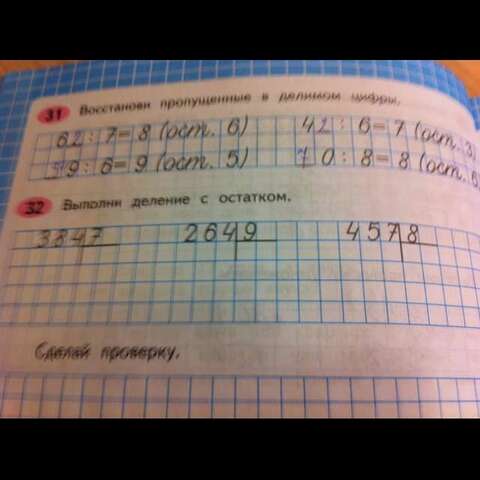 31 Восстанови пропущенные в делимом цифры.
62 : 7 = 8 (ост. 6) 42 : 6 = 7 (ост. 3)
59 : 6 = 9 (ост. 5) 70 : 8 = 8 (ост. 6
32 Выполни деление с остатком.
384 7 264 9 457 8
Сделай проверку.